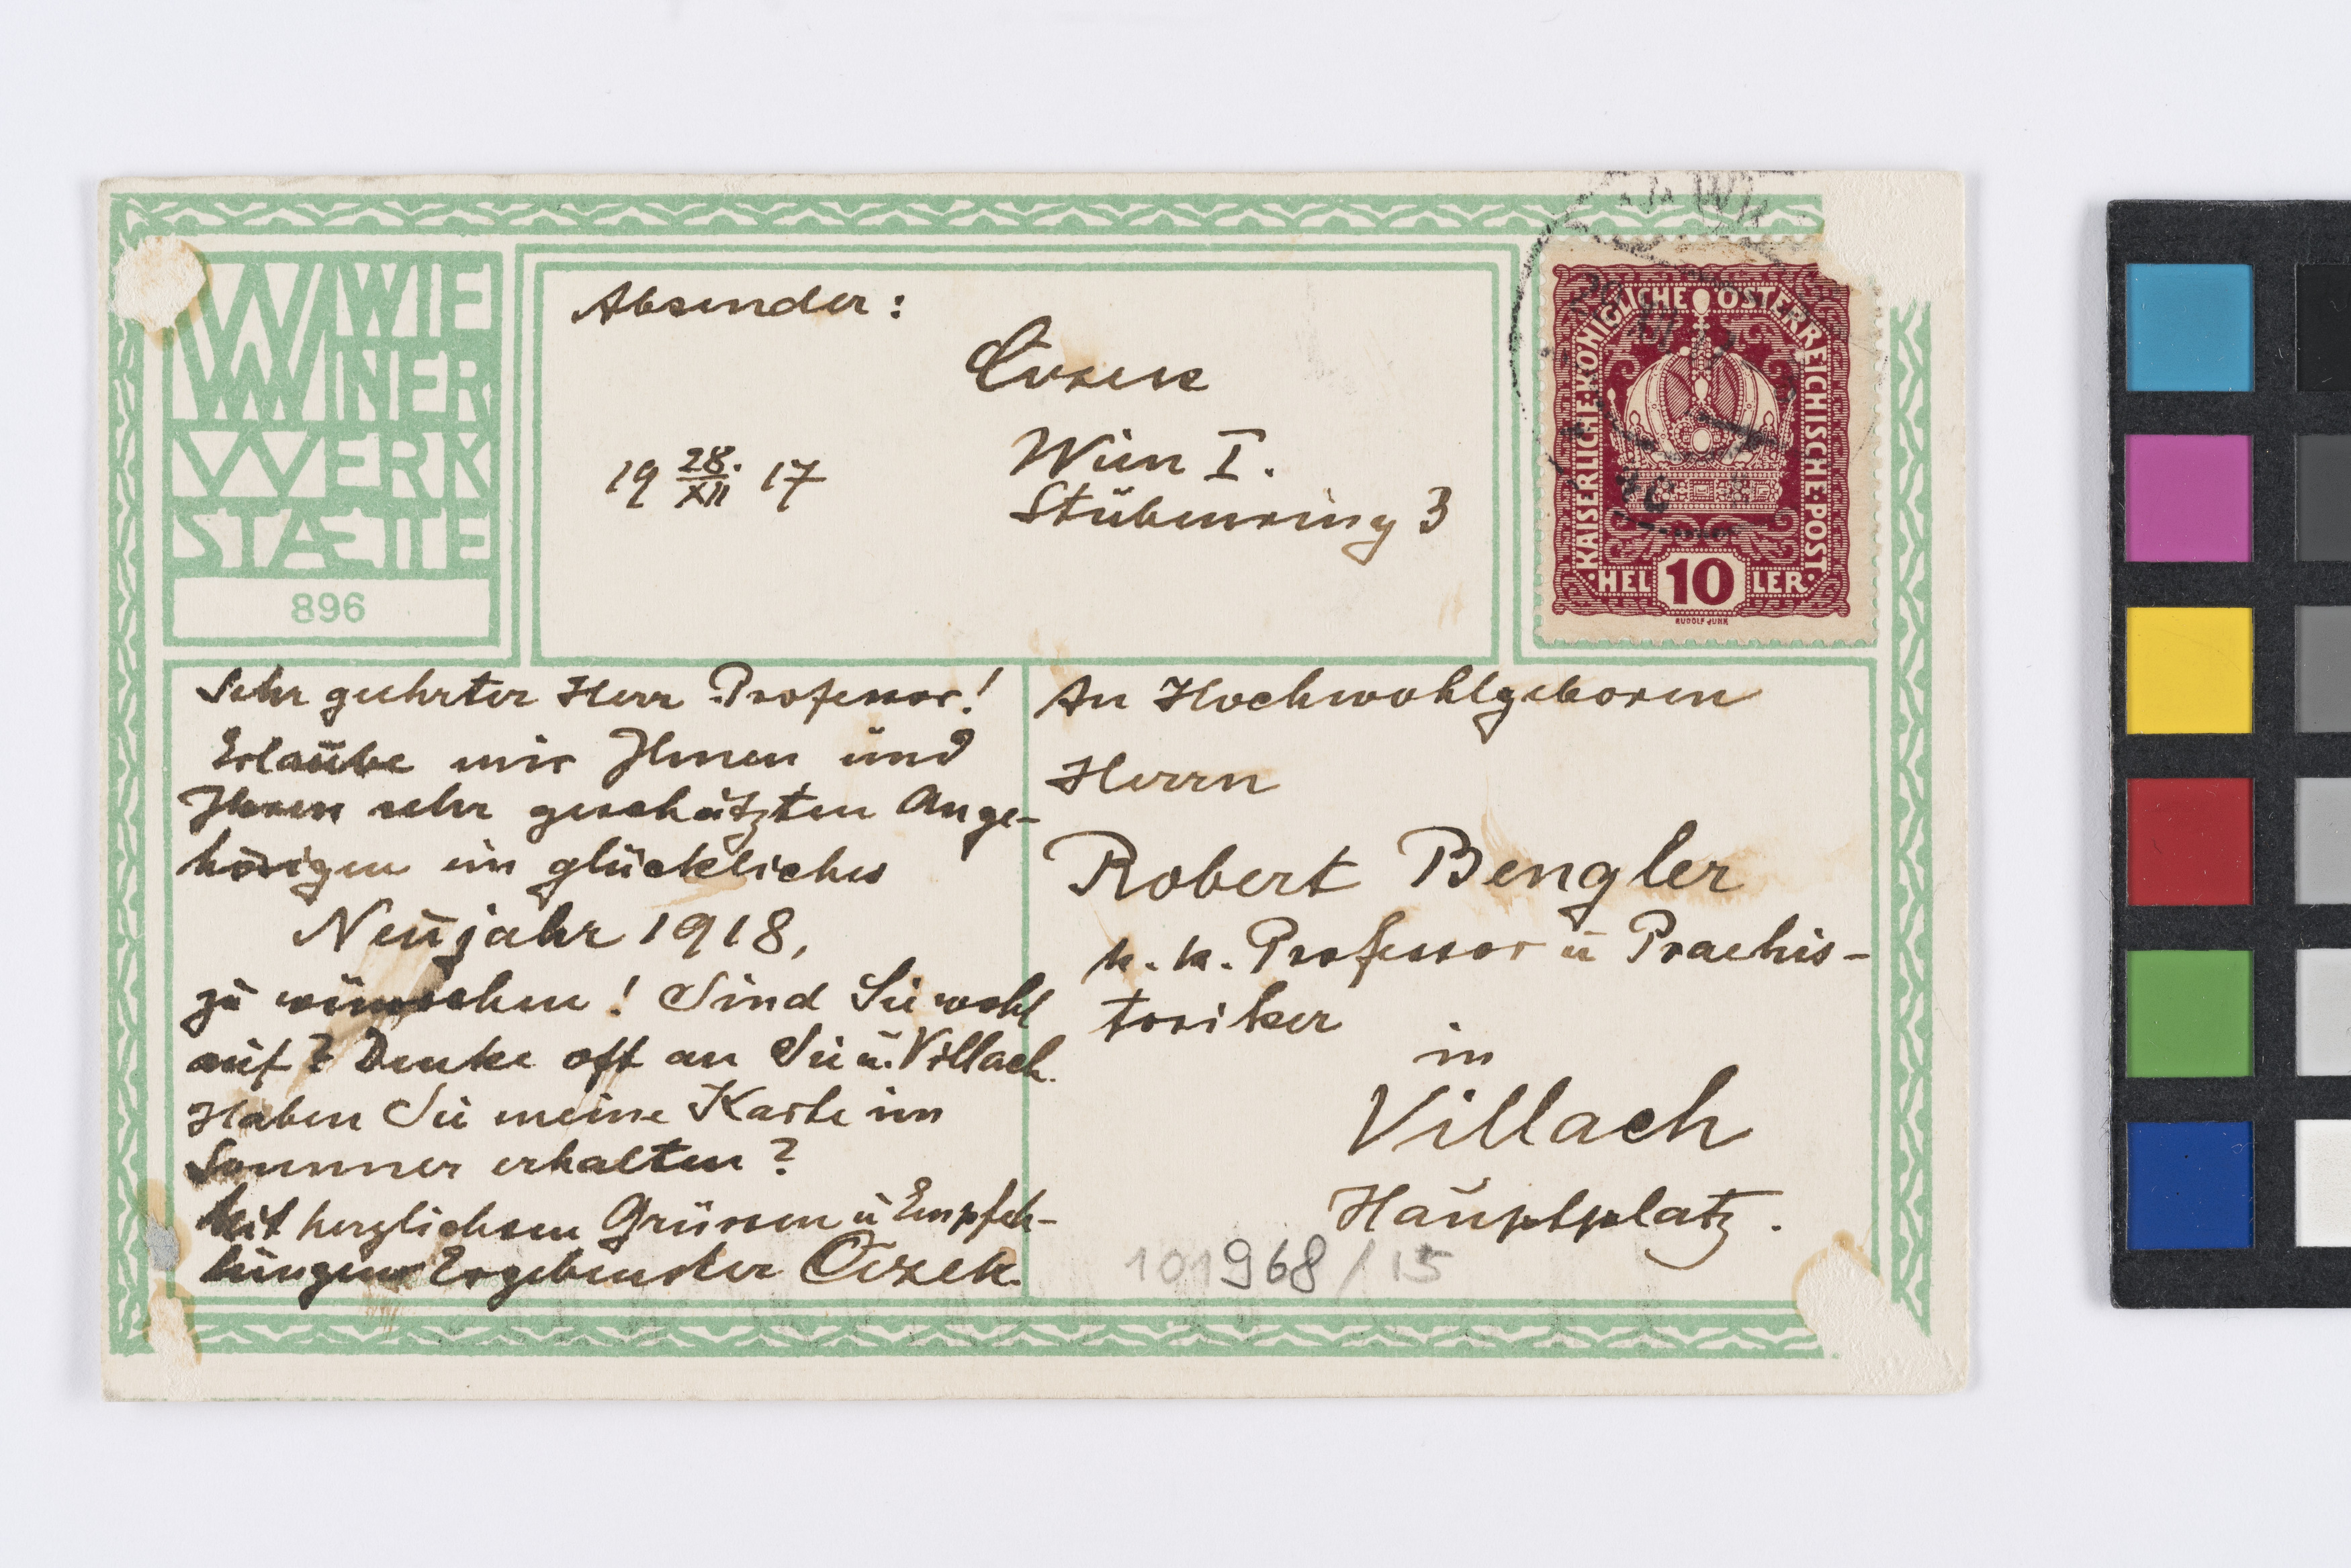 WIE
NER
WERK
STÆTTE
896
Absender:
Wien I.
19 28./XII 17
Stubenring 3
KAISERLICHE·KÖNIGLICHE ÖSTERREICHISCHE·POST
·HEL 10 LER·
RUDOLF JUNK
Sehr geehrter Herr Professor!
Erlaube mir Ihnen und
Ihren sehr geschätzten Ange-
hörigen ein glückliches
Neujahr 1918,
zu wünschen! Sind Sie wohl
auf? Denke oft an Sie u. Villach.
Haben Sie meine Karte im
Sommer erhalten?
Mit herzlichem Grüssen u Empfeh-
lungen Ergebenster
An Hochwohlgeboren
Herrn
Robert Bengler
k. k. Professor u Praehis-
toriker
in
Villach
Hauptplatz.
101968/15